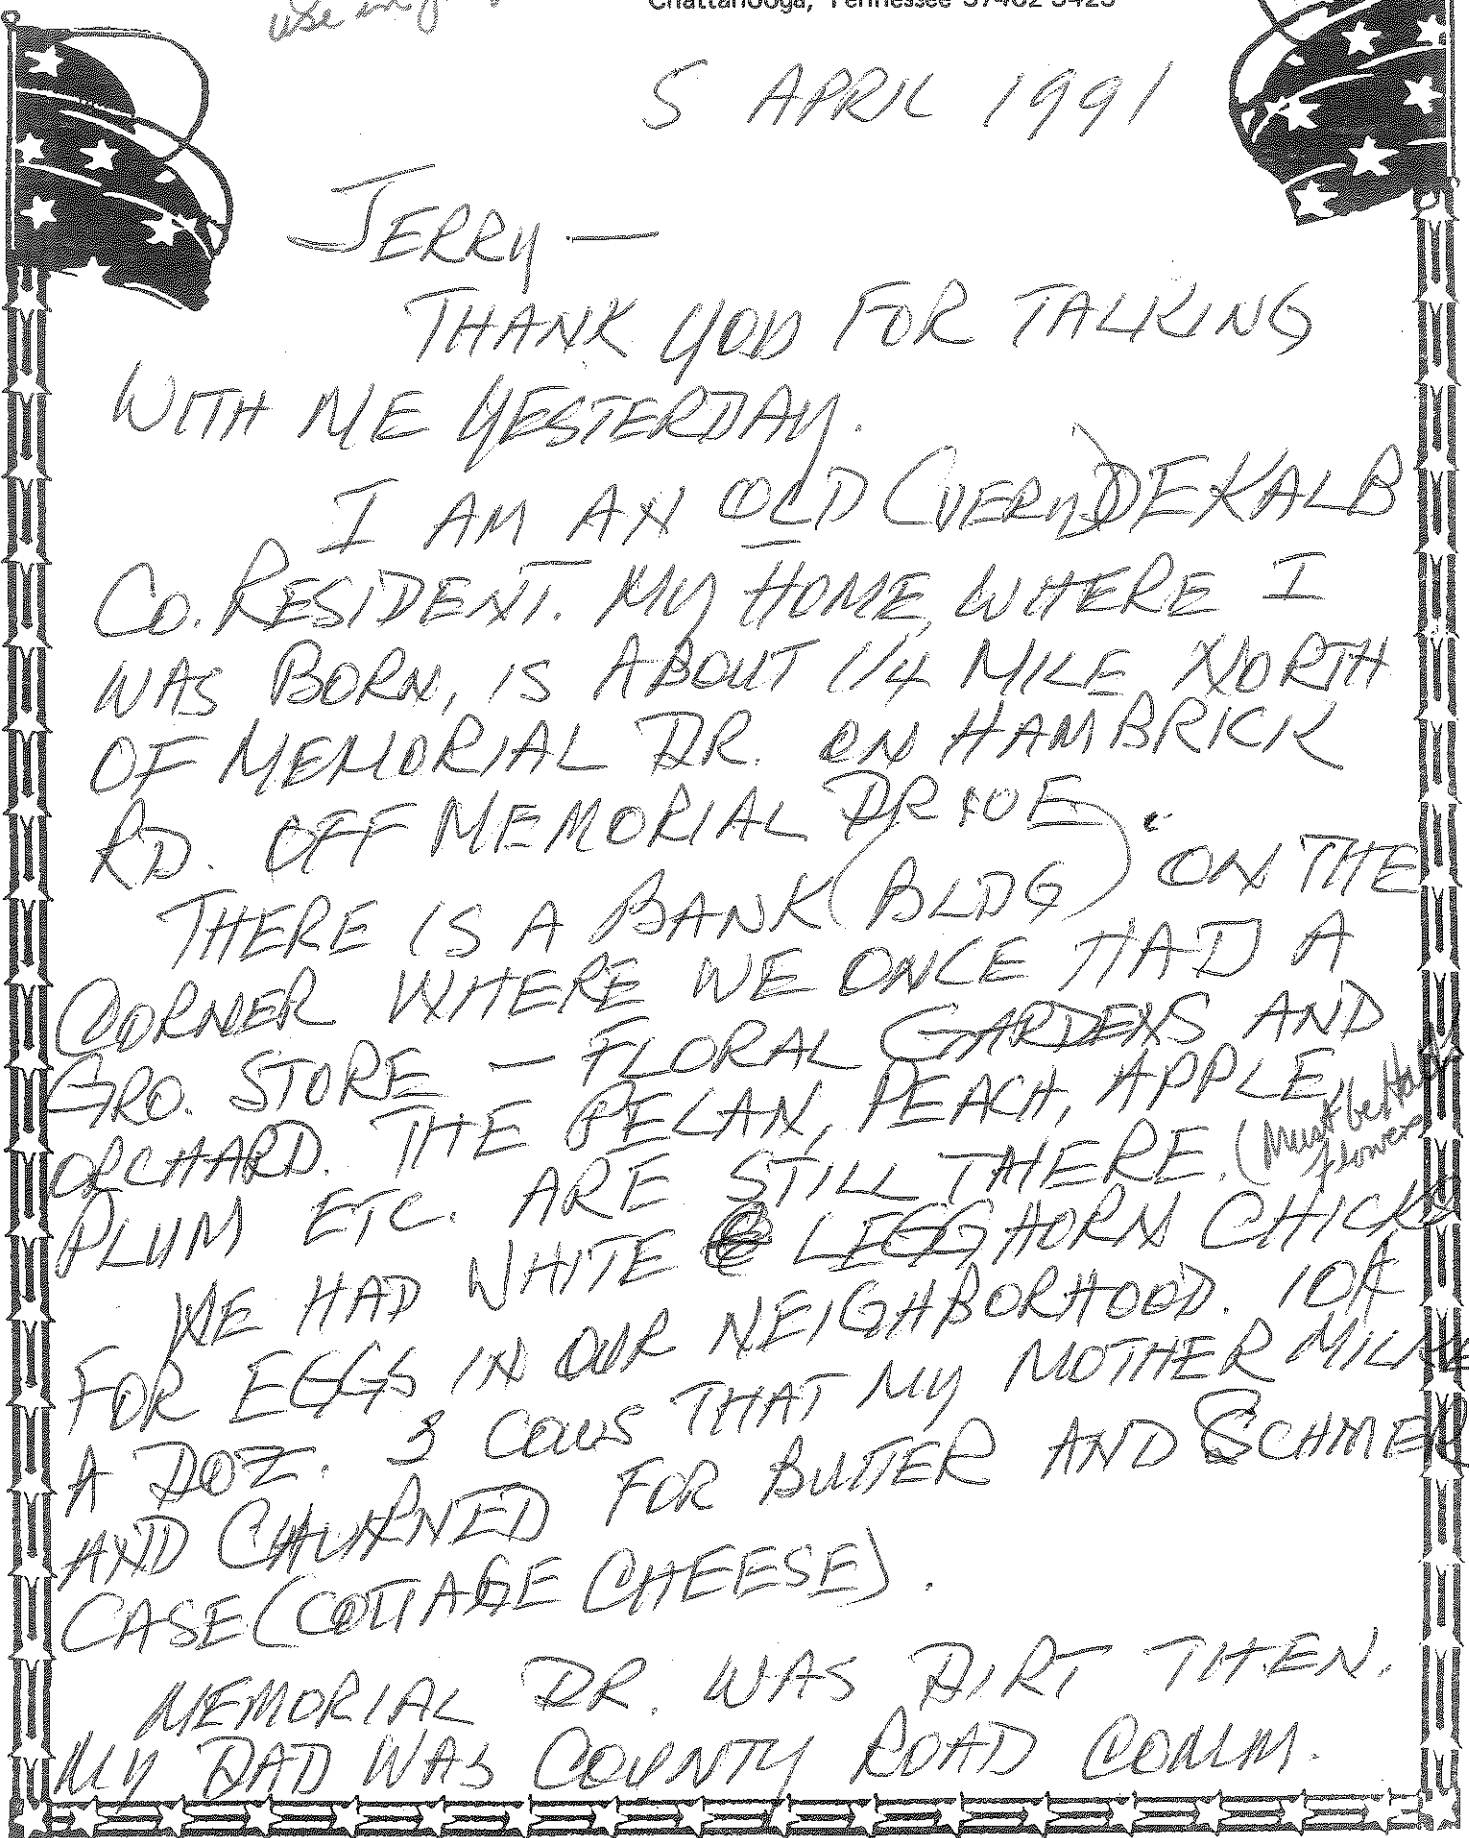 use in
Chattanooga, Tennessee 37402-3425
5 APRIL 1991
JERRY —
THANK YOU FOR TALKING
WITH ME YESTERDAY.
I AM AN OLD (VERY) DEKALB
CO. RESIDENT. MY HOME, WHERE I
WAS BORN, IS ABOUT 1/4 MILE NORTH
OF MEMORIAL DR. ON HAMBRICK
RD. OFF MEMORIAL DRIVE.
THERE IS A BANK (BLDG) ON THE
CORNER WHERE WE ONCE HAD A
GRO. STORE — FLORAL GARDENS AND
ORCHARD. THE PECAN, PEACH, APPLE,
PLUM ETC. ARE STILL THERE. (Must be
flowers
WE HAD WHITE LEGGHORN CHICKS
FOR EGGS IN OUR NEIGHBORHOOD. 10¢
A DOZ. 3 COWS THAT MY MOTHER MILKE
AND CHURNED FOR BUTTER AND SCHMER
CASE (COTTAGE CHEESE).
MEMORIAL DR. WAS DIRT THEN.
MY DAD WAS COUNTY ROAD COMM.